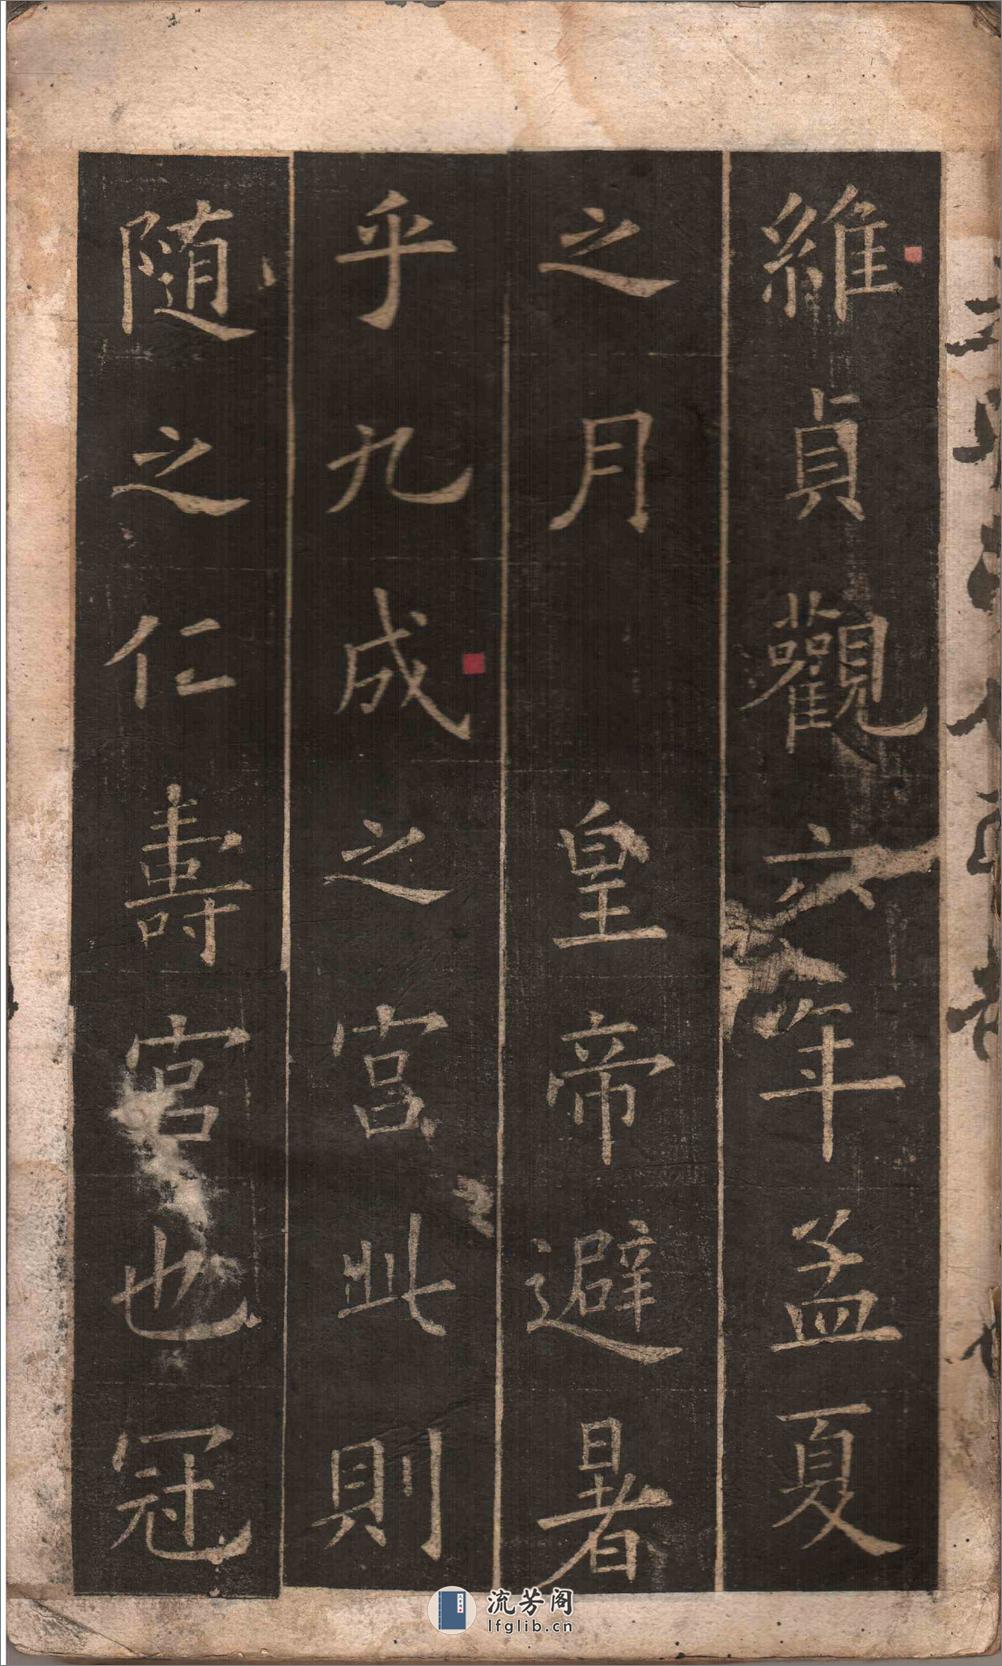 維貞觀六年孟夏
之月 皇帝避暑
乎九成之宮此則
随之仁壽宮也冠
流芳阁
lfglib.cn